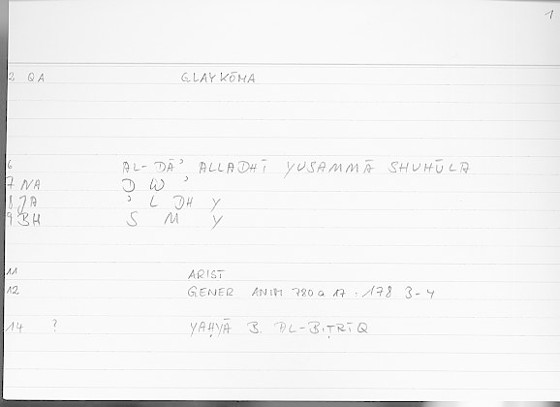 1
2 QA GLAYKŌMA
6 AL-DĀʾ ALLADHĪ YUSAMMĀ SHUHŪLA
7 NA D W ʾ
8 JA ʾ L DH Y
9 BH S M Y
11 ARIST
12 GENER ANIM 780 a 17 · 178 3-4
14 ? YAḤYĀ B. AL-BIṬRĪQ